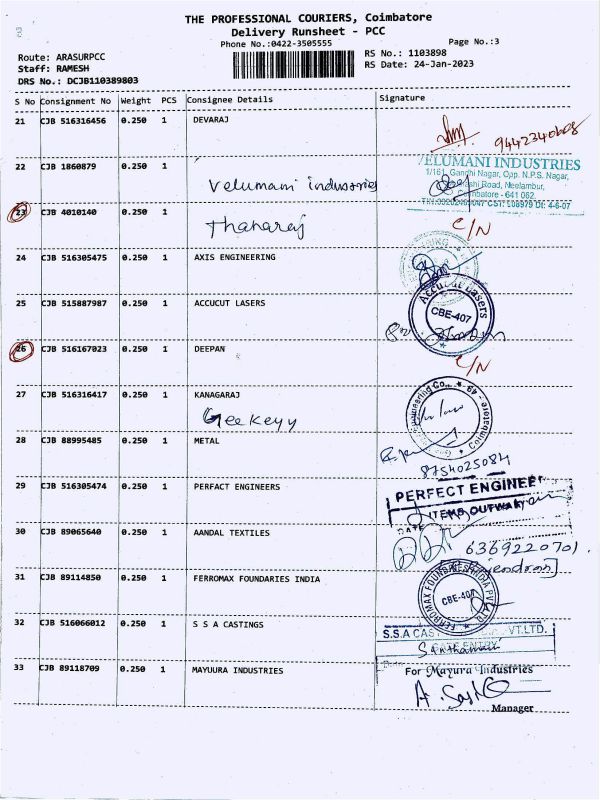 THE PROFESSIONAL COURIERS, Coimbatore
Delivery Runsheet - PCC
Phone No.:0422-3505555
Page No.:3
Route: ARASURPCC
Staff: RAMESH
DRS No.: DCJB110389803
RS No.: 1103898
RS Date: 24-Jan-2023
S No Consignment No Weight PCS Consignee Details Signature
21 CJB 516316456 0.250 1 DEVARAJ
9442340608
22 CJB 1860879 0.250 1
Velumani industries
VELUMANI INDUSTRIES
1/161, Gandhi Nagar, Opp. N.P.S. Nagar,
Road, Neelambur,
Coimbatore - 641 062.
23 CJB 4010140 0.250 1
Thanaraj
C/N
24 CJB 516305475 0.250 1 AXIS ENGINEERING
25 CJB 515887987 0.250 1 ACCUCUT LASERS
Accucut Lasers
CBE-407
26 CJB 516167023 0.250 1 DEEPAN
C/N
27 CJB 516316417 0.250 1 KANAGARAJ
Geekeyy
Engineering Co., Coimbatore - 49
28 CJB 88995485 0.250 1 METAL
8754025084
29 CJB 516305474 0.250 1 PERFACT ENGINEERS
PERFECT ENGINEE
ITEMS OUTWARD
DATE
30 CJB 89065640 0.250 1 AANDAL TEXTILES
6369220701.
31 CJB 89114850 0.250 1 FERROMAX FOUNDARIES INDIA
FERROMAX FOUNDRIES INDIA PVT
CBE-407
32 CJB 516066012 0.250 1 S S A CASTINGS
S.S.A CAST VT.LTD.
GATE ENTRY
33 CJB 89118709 0.250 1 MAYUURA INDUSTRIES
For Mayura Industries
Manager